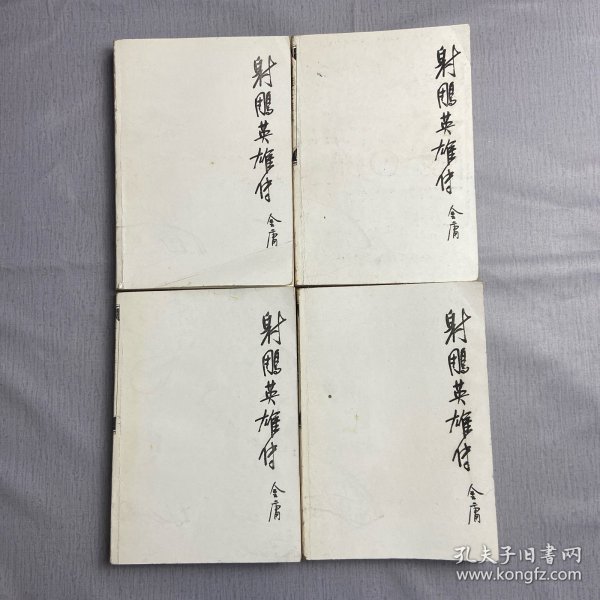 射鵰英雄传
金庸
射鵰英雄传
金庸
射鵰英雄传
金庸
射鵰英雄传
金庸
孔夫子旧书网
www.kongfz.com